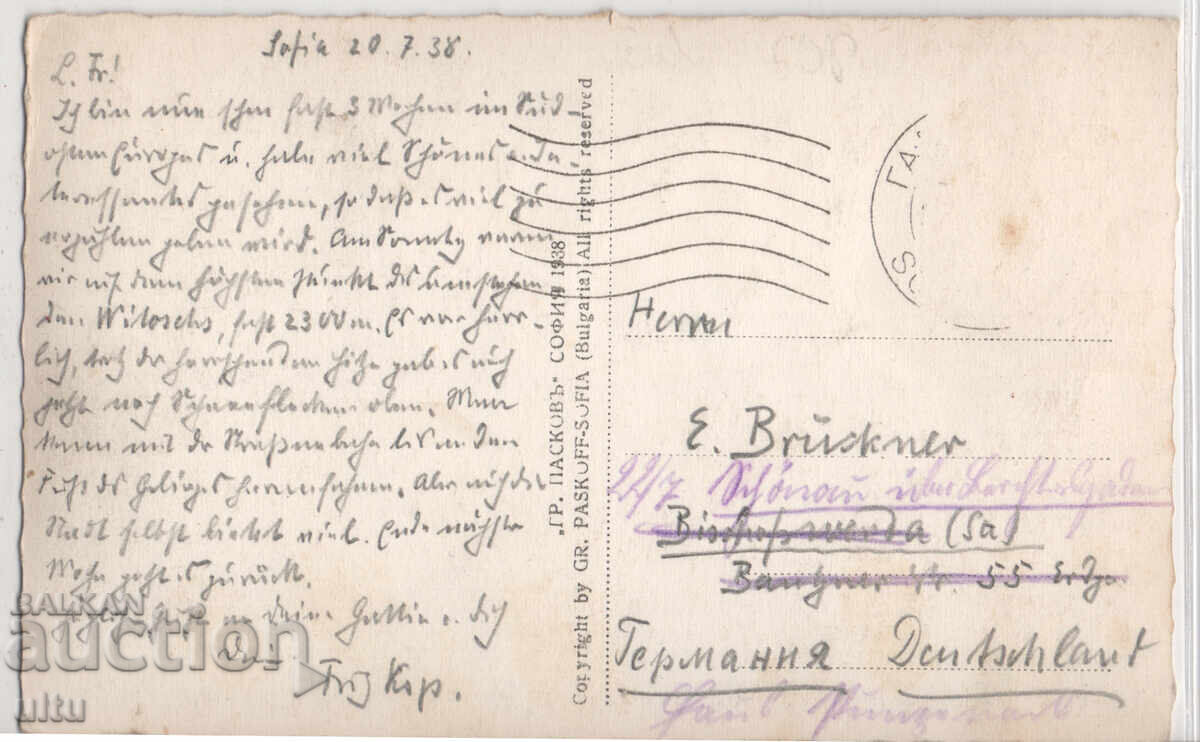 Sofia 20.7.38.
L. Fr!
Ich bin nun schon fast 3 Wochen im Süd-
osten Europas u. habe viel Schönes u. In-
teressantes gesehen, so daß es viel zu
erzählen geben wird. Am Sonntg waren
wir auf dem höchsten Punkt des
den Witoscha, fast 2300 m. Es war herr-
lich, trotz der herrschenden Hitze gab es auch
jetzt noch Schneeflecken oben. Man
kann mit der Straßenbahn bis an den
Fuß des Gebirges heranfahren. Aber auch die
Stadt selbst bietet viel. Ende nächster
Woche geht es zurück.
an Deine Gattin u. Dich
Dein Fritz Kop.
„ГР. ПАСКОВЪ" СОФИЯ 1938
Copyright by GR. PASKOFF-SOFIA (Bulgaria) All rights reserved
Herrn
E. Brückner
22/7 Schönau über Berchtesgaden
Bischofswerda (Sa)
Bautzner Str. 55 Erdg.
Германия Deutschland
Haus
BALKAN
auction
ultu